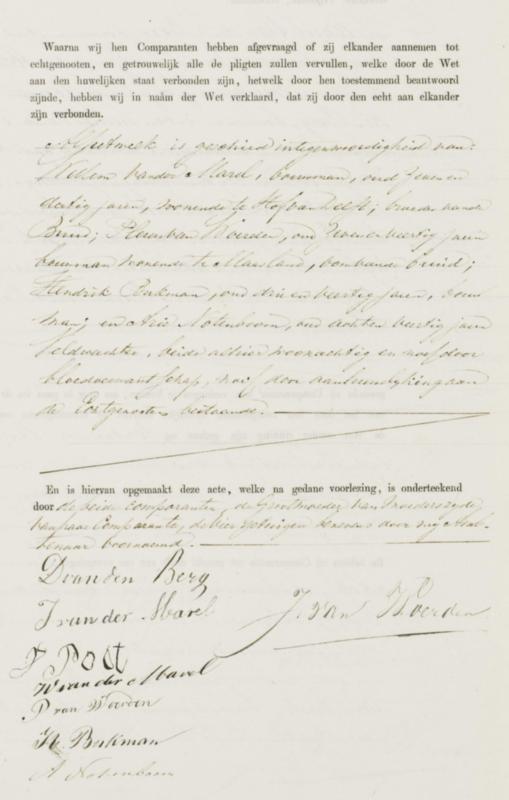 Waarna wij hen Comparanten hebben afgevraagd of zij elkander aannemen tot
echtgenooten, en getrouwelijk alle de pligten zullen vervullen, welke door de Wet
aan den huwelijken staat verbonden zijn, hetwelk door hen toestemmend beantwoord
zijnde, hebben wij in naâm der Wet verklaard, dat zij door den echt aan elkander
zijn verbonden.
is geschied in tegenwoordigheid van:
Willem van der Marel, bouwman, oud zeven en
dertig jaren, wonende te Hof van Delft; broeder van de
Bruid; Pleun van Woerden, oud zeven en veertig jaren
bouwman wonende te Maasland, oom van de bruid;
Hendrik Bukman, oud drie en veertig jaren, bouw
man; en Arie Notenboom, oud acht en veertig jaren
Veldwachter, beide alhier woonachtig en noch door
bloedverwantschap, noch door aanhuwelijking aan
de Echtgenooten bestaande.
En is hiervan opgemaakt deze acte, welke na gedane voorlezing, is onderteekend
door de beide comparanten, de Grootmoeder van Moederszijde
van haar Comparante, de vier getuigen benevens door mij Amb-
tenaar voornoemd.
D van den Berg
J van der Marel
J. van Woerden
P Post
W van der Marel
P van Woerden
H. Bukman
A Notenboom